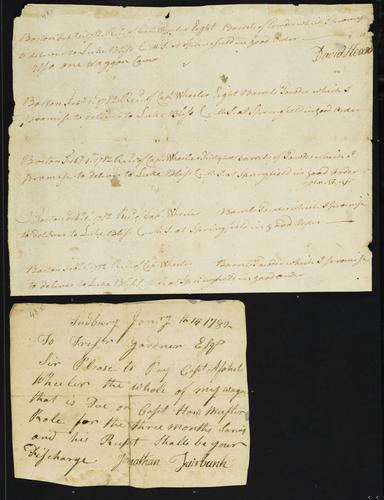 Boston Feb 1782 Recd of Capt Wheeler Eight Barrels of Powder which I promise
to deliver to Luke Bliss Q M S at Springfield in good order
also one Waggon Cover
David Head
Boston Feb 1782 Recd of Capt Wheeler Eight Barrels Powder which I
promise to deliver to Luke Bliss Q M S at Springfield in good order
Boston Feb 1782 Recd of Capt Wheeler Barrels of Powder which I
promise to deliver to Luke Bliss Q M S at Springfield in good order
Boston Feb 1782 Recd of Capt Wheeler Barrels Powder which I promise
to deliver to Luke Bliss Q M S at Springfield in good order
Boston Feb 1782 Recd of Capt Wheeler Barrels Powder which I promise
to deliver to Luke Bliss Q M S at Springfield in good order
Sudbury Janry 1782
To Gardner Esqr
Sir Please to Pay Capt Asahel
Wheeler the whole of my wages
that is Due on Capt How Muster
Role for the three months Servis
and his Recpt Shall be your
Discharge Jonathan Fairbank